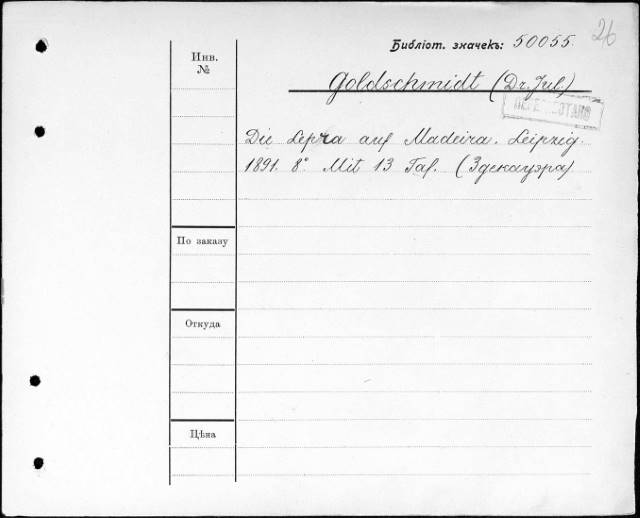 26
Библіот. значекъ: 50055.
Инв.
№
Goldschmidt (Dr. Jul.)
ПЕРЕРАБОТАНО
Die Lepra auf Madeira. Leipzig.
1891. 8° Mit 13 Taf. (Здекауэра)
По заказу
Откуда
Цѣна